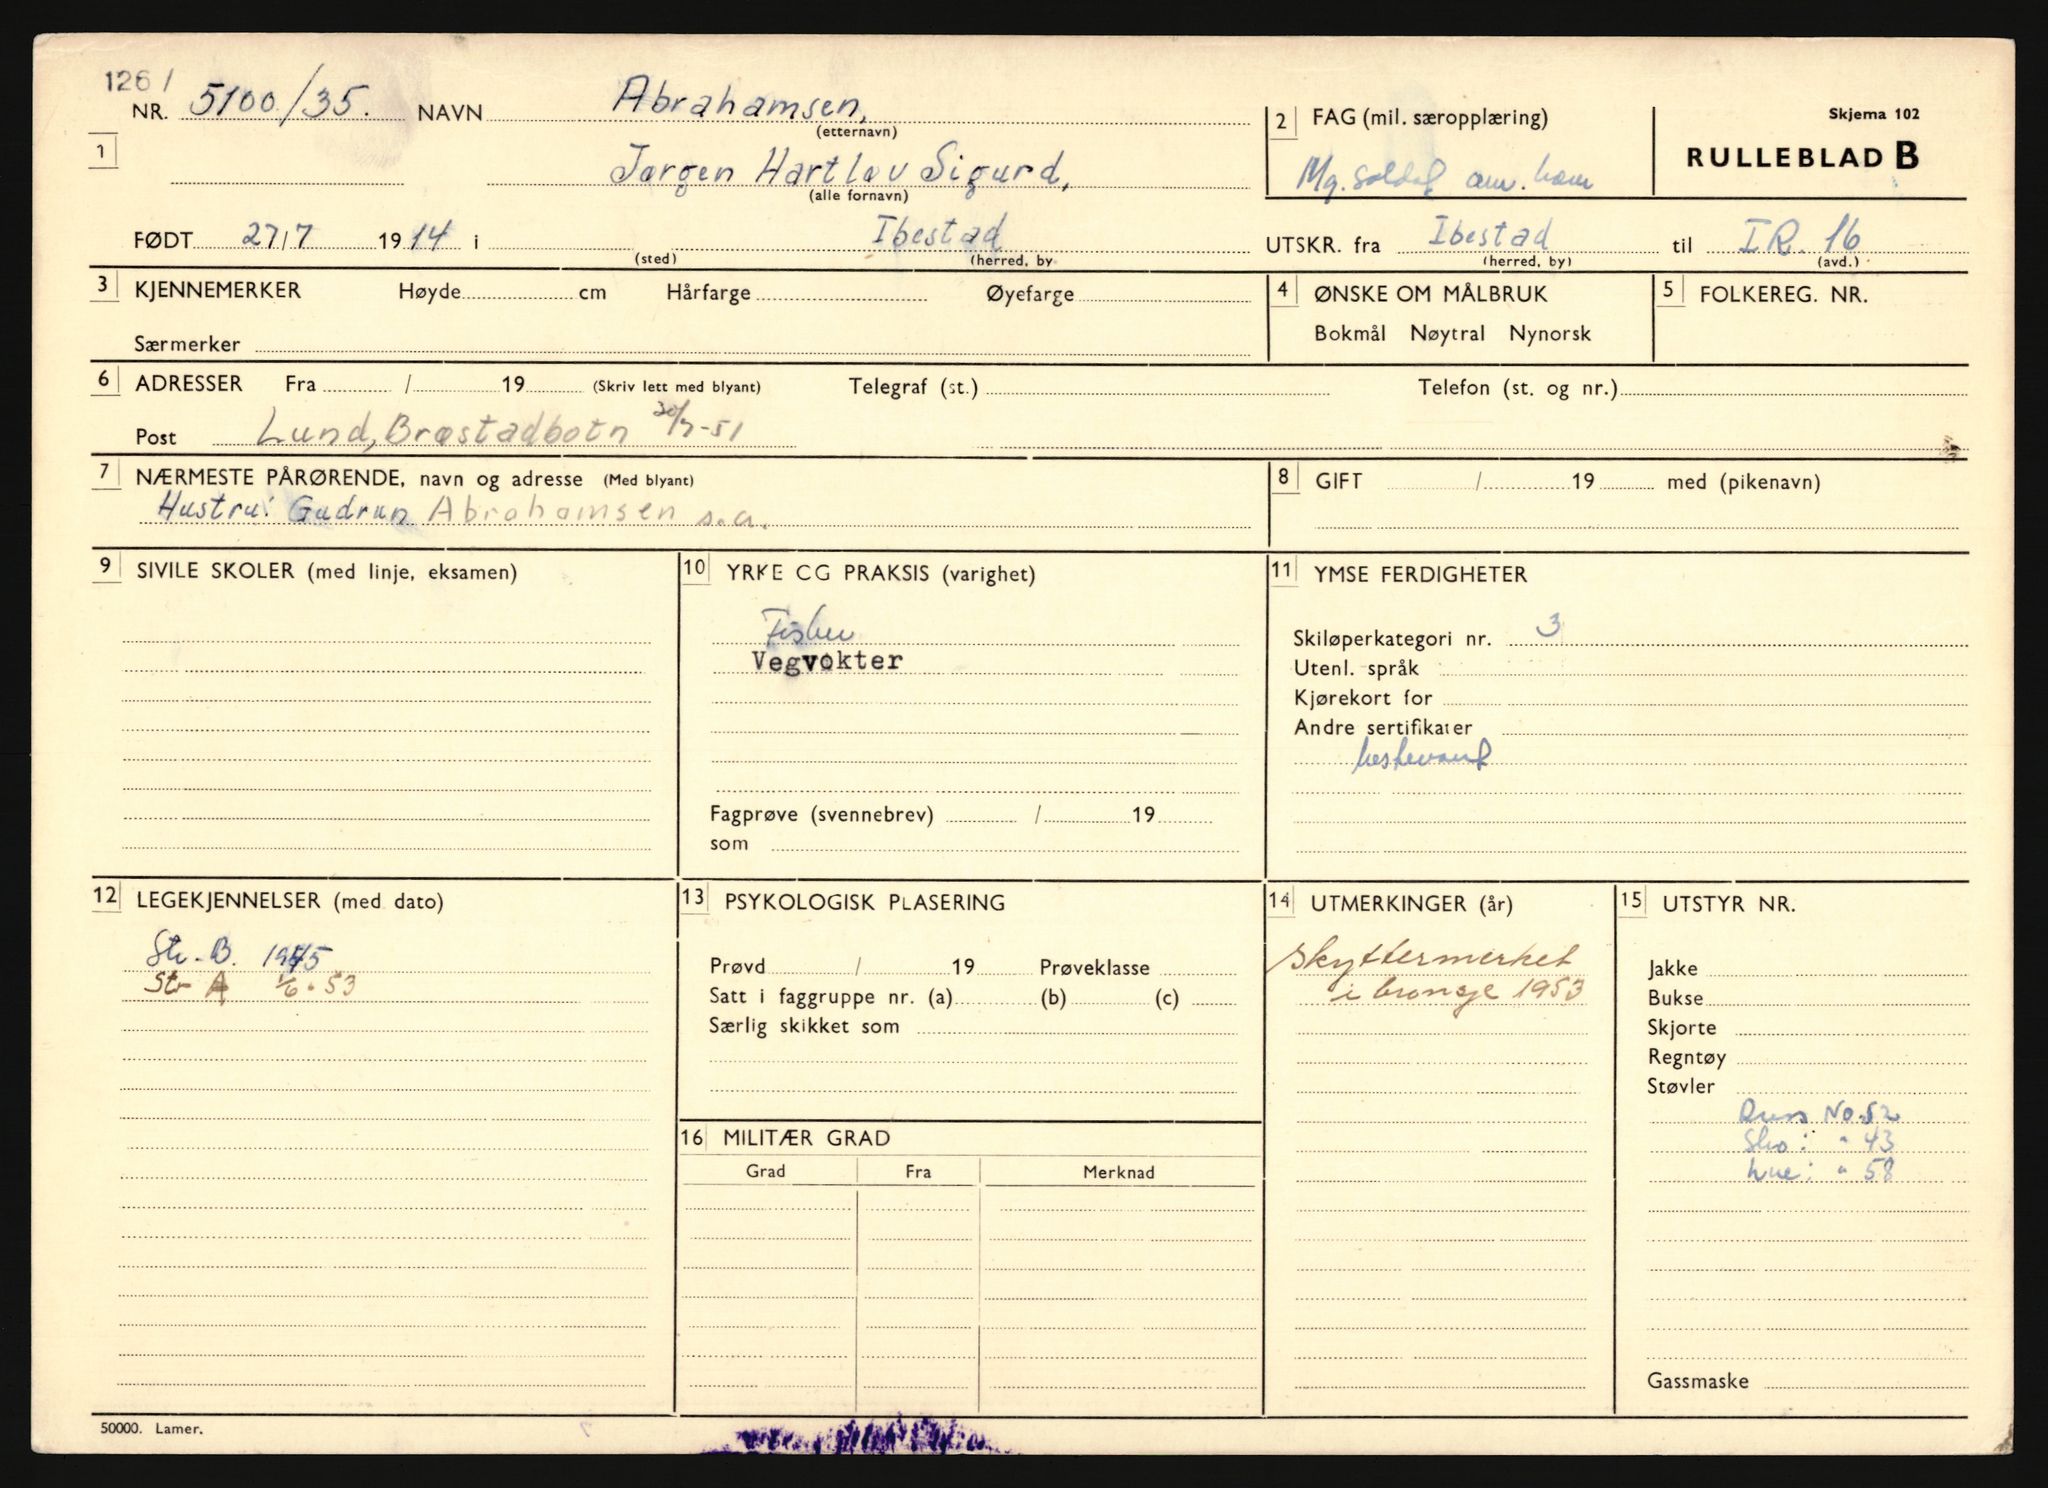 1261
NR. 5100/35. NAVN Abrahamsen,
(etternavn)
1
Jørgen Hartløv Sigurd,
(alle fornavn)
2 FAG (mil. særopplæring)
Mg. soldat am. kom
Skjema 102
RULLEBLAD B
FØDT 27/7 1914 i Ibestad
(sted) (herred, by
UTSKR. fra Ibestad til I.R. 16
(herred, by) (avd.)
3 KJENNEMERKER Høyde cm Hårfarge Øyefarge
Særmerker
4 ØNSKE OM MÅLBRUK
Bokmål Nøytral Nynorsk
5 FOLKEREG. NR.
6 ADRESSER Fra / 19 (Skriv lett med blyant) Telegraf (st.) Telefon (st. og nr.)
Post Lund, Brøstadbotn 20/7-51
7 NÆRMESTE PÅRØRENDE, navn og adresse (Med blyant)
Hustru: Gudrun Abrahamsen s.a.
8 GIFT / 19 med (pikenavn)
9 SIVILE SKOLER (med linje, eksamen)
10 YRKE OG PRAKSIS (varighet)
Fisker
Vegvokter
Fagprøve (svennebrev) / 19
som
11 YMSE FERDIGHETER
Skiløperkategori nr. 3
Utenl. språk
Kjørekort for
Andre sertifikater
hestevant
12 LEGEKJENNELSER (med dato)
Str. B. 1945
Str A 1/6.53
13 PSYKOLOGISK PLASERING
Prøvd / 19 Prøveklasse
Satt i faggruppe nr. (a) (b) (c)
Særlig skikket som
14 UTMERKINGER (år)
Skyttermerket
i bronsje 1953
15 UTSTYR NR.
Jakke
Bukse
Skjorte
Regntøy
Støvler
Dress No. 52
Sko: " 43
Lue: " 58
Gassmaske
16 MILITÆR GRAD
Grad Fra Merknad
50000. Lamer.